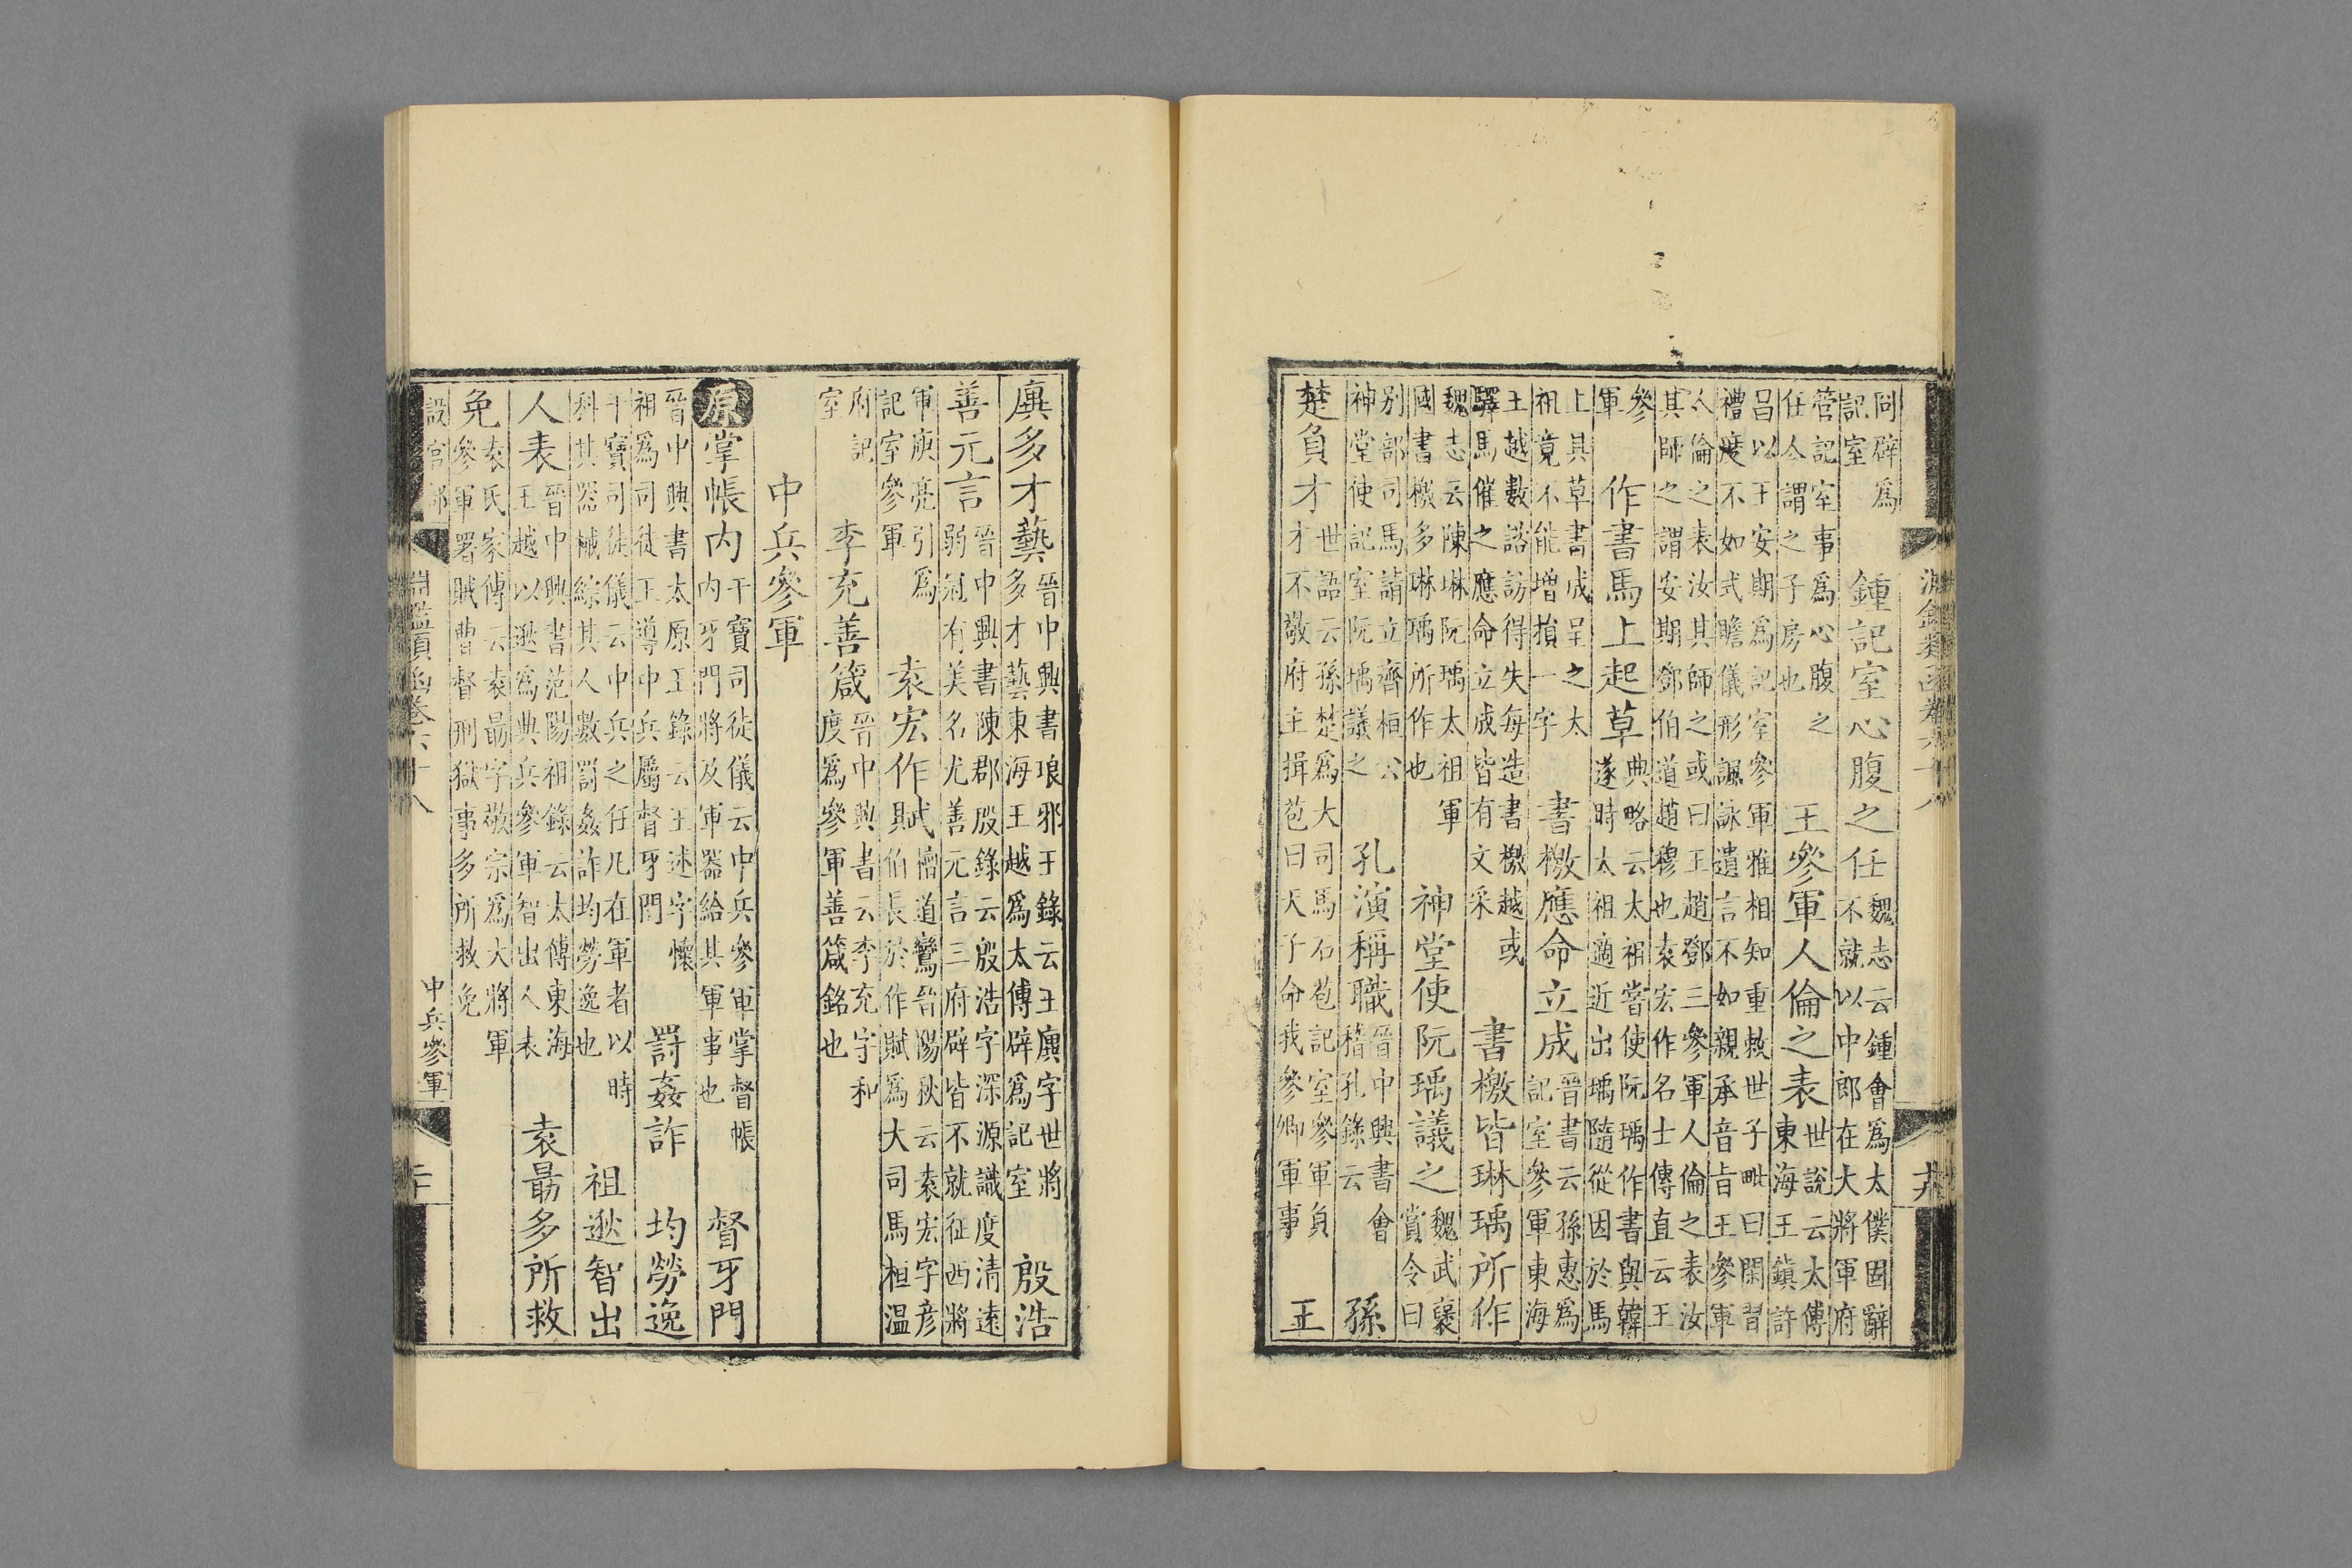 同辟爲
記室
鍾記室心腹之任
魏志云鍾會爲太僕固辭
不就以中郎在大將軍府
管記室事爲心腹之
任人謂之子房也
王參軍人倫之表
世說云太傅
東海王鎮許
昌以王安期爲記室參軍雅相知重敕世子毗曰閑習
禮度不如式瞻儀形諷詠遺言不如親承音旨王參軍
人倫之表汝其師之或曰王趙鄧三參軍人倫之表汝
其師之謂安期鄧伯道趙穆也袁宏作名士傳直云王
參
軍
作書馬上起草
典略云太祖嘗使阮瑀作書與韓
遂時太祖適近出瑀隨從因於馬
上具草書成呈之太
祖竟不能增損一字
書檄應命立成
晉書云孫惠爲
記室參軍東海
王越數諮訪得失每造書檄越或
驛馬催之應命立成皆有文采
書檄皆琳瑀所作
魏志云陳琳阮瑀太祖軍
國書檄多琳瑀所作也
神堂使阮瑀議之
魏武褒
賞令曰
别部司馬請立齊桓公
神堂使記室阮瑀議之
孔演稱職
晉中興書會
稽孔錄云
孫
楚負才
世語云孫楚爲大司馬石苞記室參軍負
才不敬府主揖苞曰天子命我參卿軍事
王
廙多才藝
晉中興書琅邪王錄云王廙字世將
多才藝東海王越爲太傅辟爲記室
殷浩
善元言
晉中興書陳郡殷錄云殷浩字深源識度清遠
弱冠有美名尤善元言三府辟皆不就征西將
軍庾亮引爲
記室參軍
袁宏作賦
檀道鸞晉陽秋云袁宏字彦
伯長於作賦爲大司馬桓温
府記
室
李充善箴
晉中興書云李充字和
度爲參軍善箴銘也
中兵參軍
原
掌帳内
干寶司徒儀云中兵參軍掌督帳
内牙門將及軍器給其軍事也
督牙門
晉中興書太原王錄云王述字懷
祖爲司徒王導中兵屬督牙門
罸姦詐
均勞逸
干寶司徒儀云中兵之任凡在軍者以時
科其器械綜其人數罰姦詐均勞逸也
祖逖智出
人表
晉中興書范陽祖錄云太傅東海
王越以逖爲典兵參軍智出人表
袁勗多所救
免
袁氏家傳云袁勗字敬宗爲大將軍
參軍署賊曹督刑獄事多所救免
設官部
淵鑑類函卷六十八
中兵參軍
二十